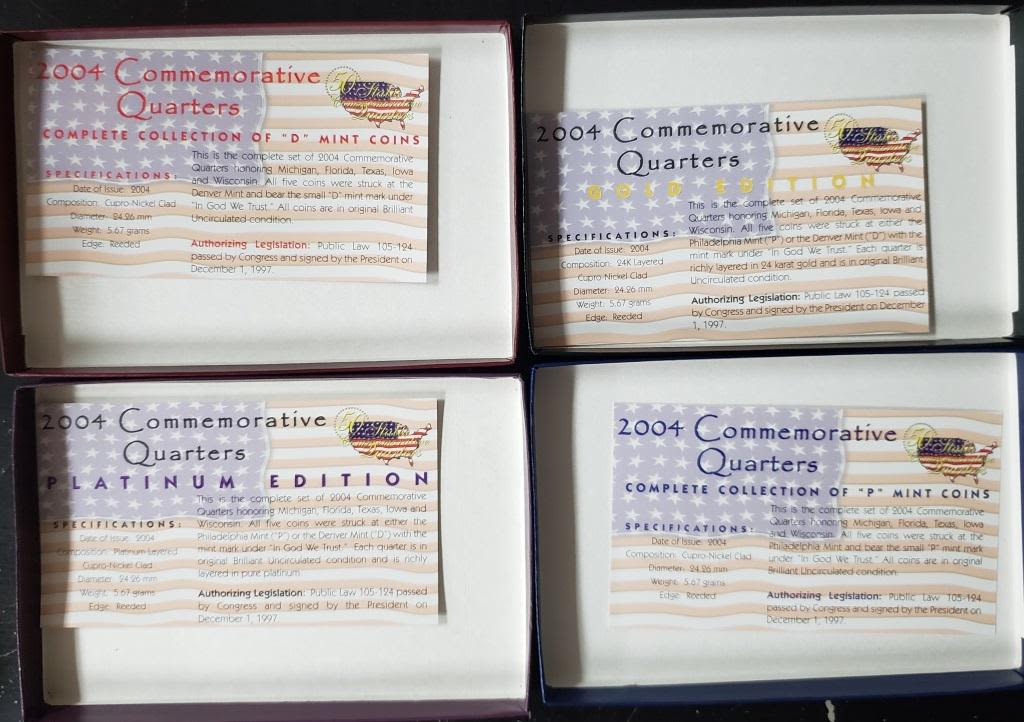 2004 Commemorative
Quarters
COMPLETE COLLECTION OF "D" MINT COINS
SPECIFICATIONS:
Date of Issue: 2004
Composition: Cupro-Nickel Clad
Diameter: 24.26 mm
Weight: 5.67 grams
Edge: Reeded
This is the complete set of 2004 Commemorative
Quarters honoring Michigan, Florida, Texas, Iowa
and Wisconsin. All five coins were struck at the
Denver Mint and bear the small "D" mint mark under
"In God We Trust." All coins are in original Brilliant
Uncirculated condition.
Authorizing Legislation: Public Law 105-124
passed by Congress and signed by the President on
December 1, 1997.
2004 Commemorative
Quarters
GOLD EDITION
SPECIFICATIONS:
Date of Issue: 2004
Composition: 24K Layered
Cupro Nickel Clad
Diameter: 24.26 mm
Weight: 5.67 grams
Edge: Reeded
This is the complete set of 2004 Commemorative
Quarters honoring Michigan, Florida, Texas, Iowa and
Wisconsin. All five coins were struck at either the
Philadelphia Mint ("P") or the Denver Mint ("D") with the
mint mark under "In God We Trust." Each quarter is
richly layered in 24 karat gold and is in original Brilliant
Uncirculated condition.
Authorizing Legislation: Public Law 105-124 passed
by Congress and signed by the President on December
1, 1997.
2004 Commemorative
Quarters
PLATINUM EDITION
SPECIFICATIONS:
Date of Issue: 2004
Composition: Platinum Layered
Cupro-Nickel Clad
Diameter: 24.26 mm
Weight: 5.67 grams
Edge: Reeded
This is the complete set of 2004 Commemorative
Quarters honoring Michigan, Florida, Texas, Iowa and
Wisconsin. All five coins were struck at either the
Philadelphia Mint ("P") or the Denver Mint ("D") with the
mint mark under "In God We Trust." Each quarter is in
original Brilliant Uncirculated condition and is richly
layered in pure platinum.
Authorizing Legislation: Public Law 105-124 passed
by Congress and signed by the President on
December 1, 1997.
2004 Commemorative
Quarters
COMPLETE COLLECTION OF "P" MINT COINS
SPECIFICATIONS:
Date of Issue: 2004
Composition: Cupro-Nickel Clad
Diameter: 24.26 mm
Weight: 5.67 grams
Edge: Reeded
This is the complete set of 2004 Commemorative
Quarters honoring Michigan, Florida, Texas, Iowa
and Wisconsin. All five coins were struck at the
Philadelphia Mint and bear the small "P" mint mark
under "In God We Trust." All coins are in original
Brilliant Uncirculated condition.
Authorizing Legislation: Public Law 105-124
passed by Congress and signed by the President on
December 1, 1997.